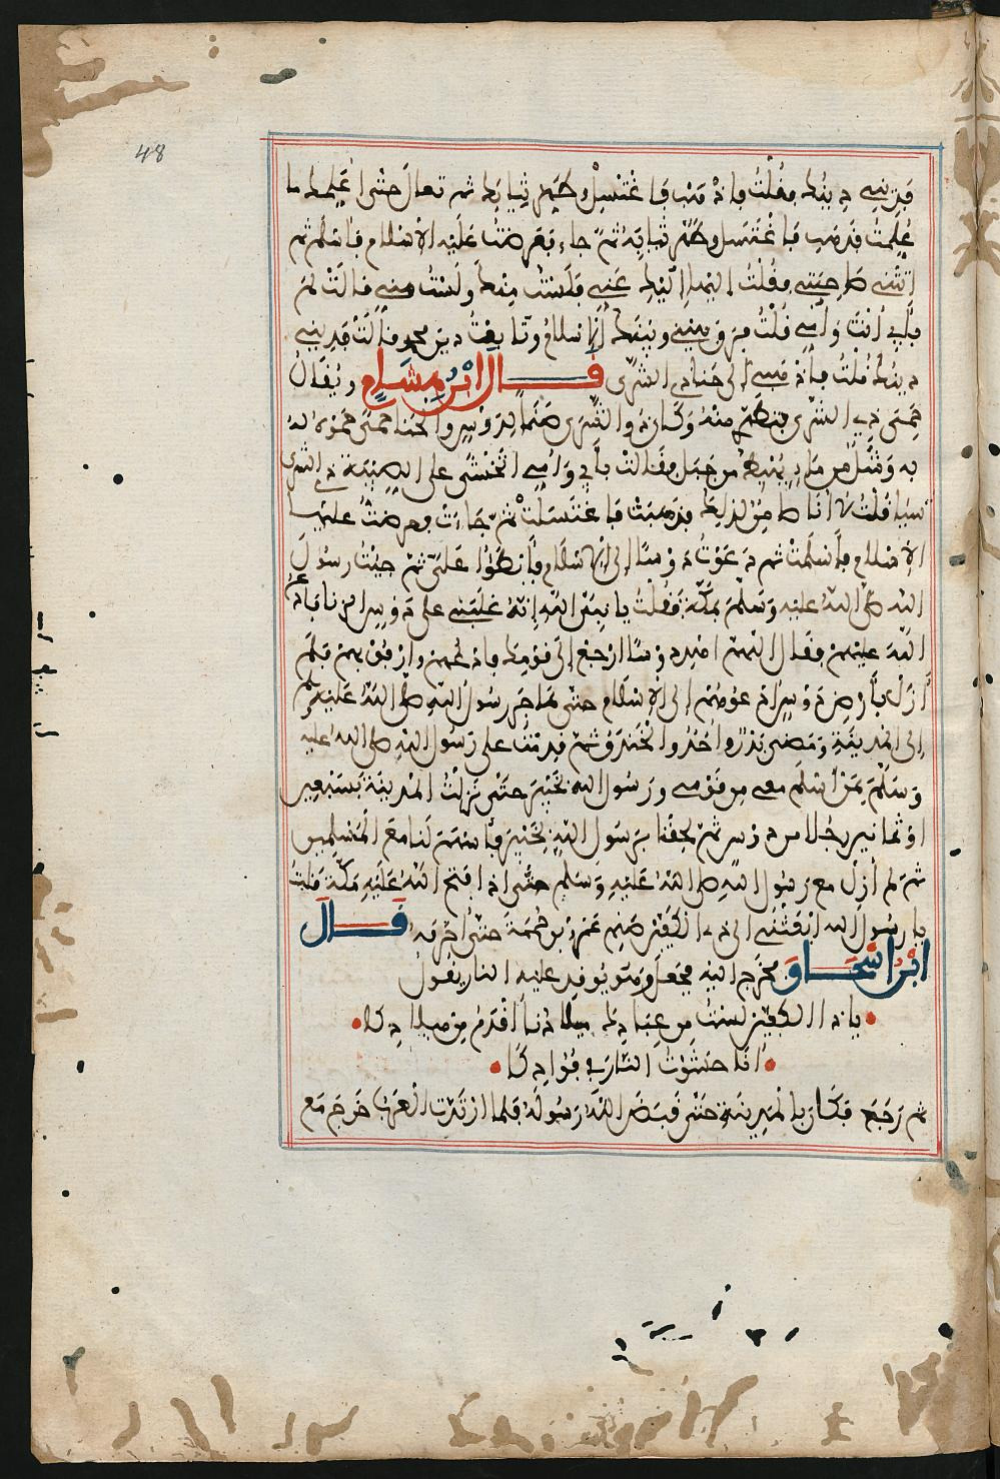 48
فديني دينك فقلت فاذهب فاغتسل وطهر ثيابك ثم تعال حتى اعلمك ما
علمت فذهب فاغتسل وطهر ثيابه ثم جاء فعرضت عليه الاسلام فاسلم ثم
اتتني صاحبتي فقلت اليك عني فلست منك ولست مني قالت لم
بابي انت وامي قلت فرق بيني وبينك الاسلام وتابعت دين محمد قالت فديني
دينك قلت فاذهبي الى حنا ذي الشرى قال ابن هشام ويقال
حمى ذي الشرى فتطهري منه وكان ذو الشرى صنما لدوس والحنا حمى حموه له
به وشل من ماء يهبط من جبل فقالت بابي وامي اتخشى على الصبية من ذي الشرى
شيا قلت لا انا ضامن لذلك فذهبت فاغتسلت ثم جاءت فعرضت عليها
الاسلام فاسلمت ثم دعوت دوسا الى الاسلام فابطؤا علي ثم جيت رسول
الله صلى الله عليه وسلم بمكة فقلت يا نبي الله انه غلبني على دوس الزنا فادع
الله عليهم فقال اللهم اهد دوسا ارجع الى قومك فادعهم وارفق بهم فلم
ازل بارض دوس ادعوهم الى الاسلام حتى هاجر رسول الله صلى الله عليه وسلم
الى المدينة ومضى بدر واحد والخندق ثم قدمت على رسول الله صلى الله عليه
وسلم بمن اسلم معي من قومي ورسول الله بخيبر حتى نزلت المدينة بسبعين
او ثمانين رجلا من دوس ثم لحقنا برسول الله بخيبر فاسهم لنا مع المسلمين
ثم لم ازل مع رسول الله صلى الله عليه وسلم حتى اذا فتح الله عليه مكة قلت
يا رسول الله ابعثني الى ذي الكفين صنم عمرو بن حممة حتى احرقه قال
ابن اسحاق فخرج اليه فجعل وهو يوقد عليه النار يقول
يا ذا الكفين لست من عبادكا ميلادنا اقدم من ميلادكا
انا حشوت النار في فؤادكا
ثم رجع فكان بالمدينة حتى قبض الله رسوله فلما ارتدت العرب خرج مع